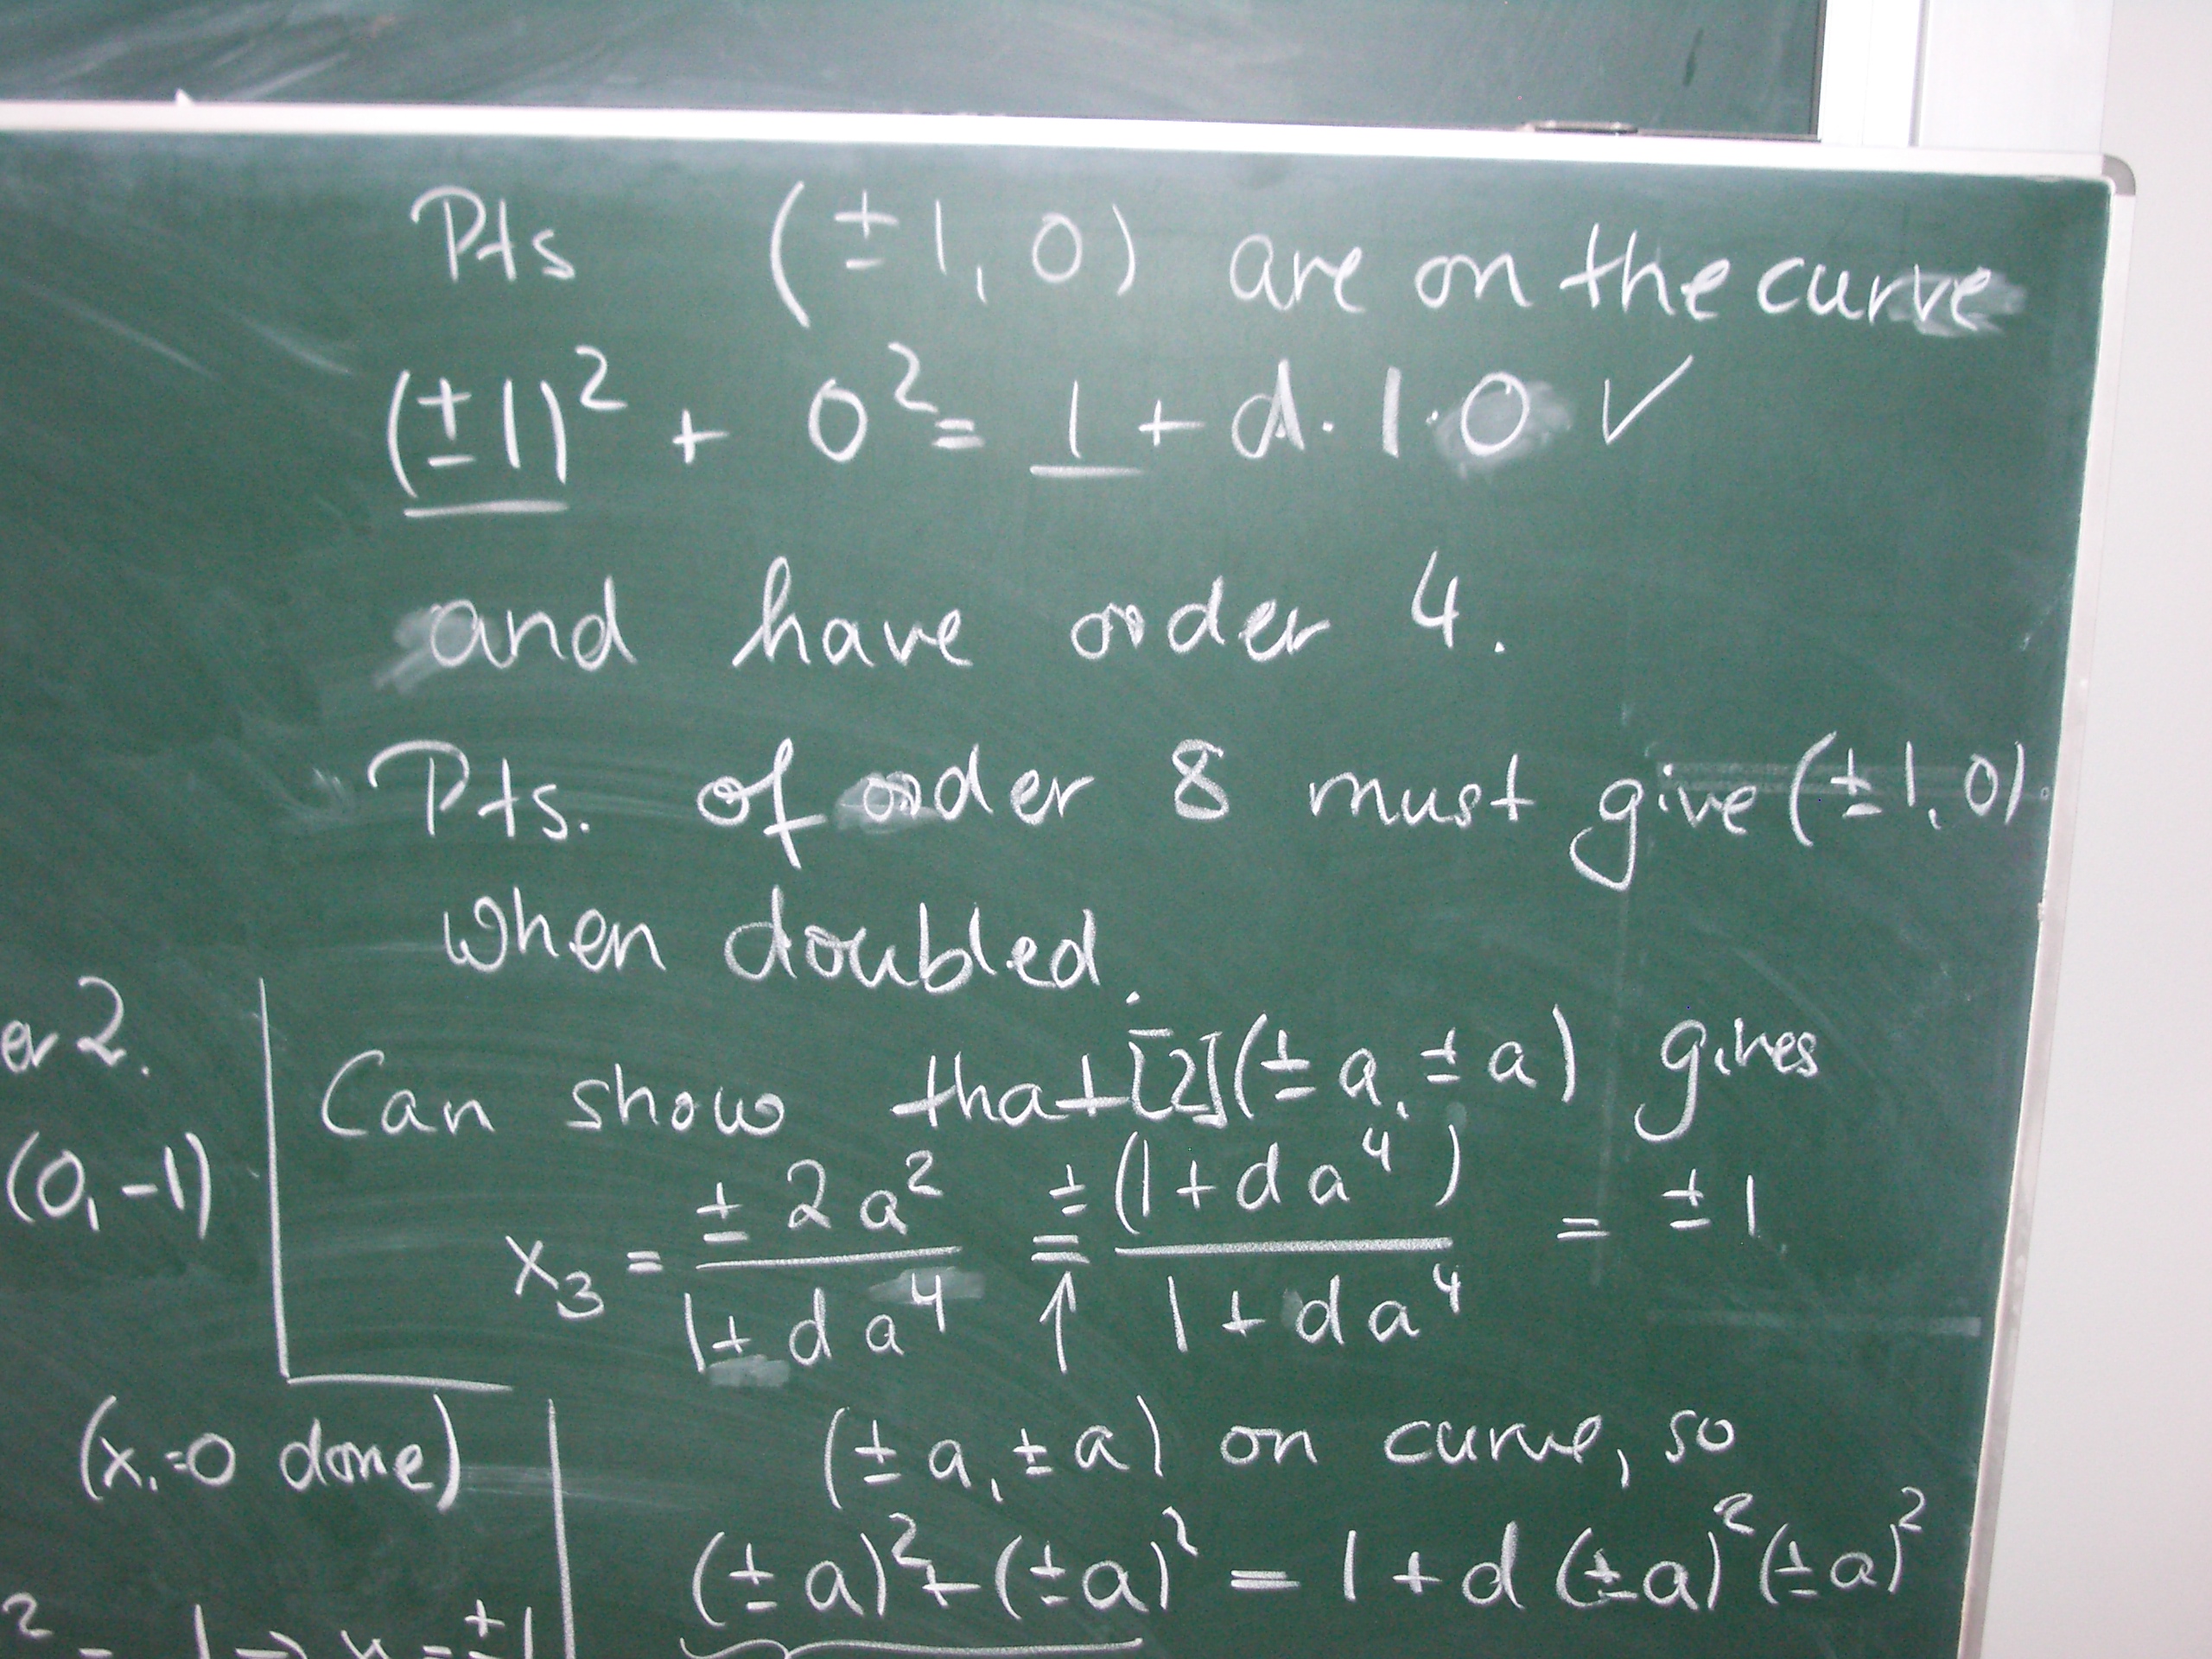 Pts (±1, 0) are on the curve
(±1)² + 0² = 1 + d · 1 · 0 ✓
and have order 4.
Pts. of order 8 must give (±1, 0)
when doubled.
Can show that [2](±a, ±a) gives
x₃ = ±2a² / (1+da⁴) = ±(1+da⁴) / (1+da⁴) = ±1
↑
(±a, ±a) on curve, so
(±a)² + (±a)² = 1 + d (±a)² (±a)²
er 2.
(0, -1)
(x₁=0 done)